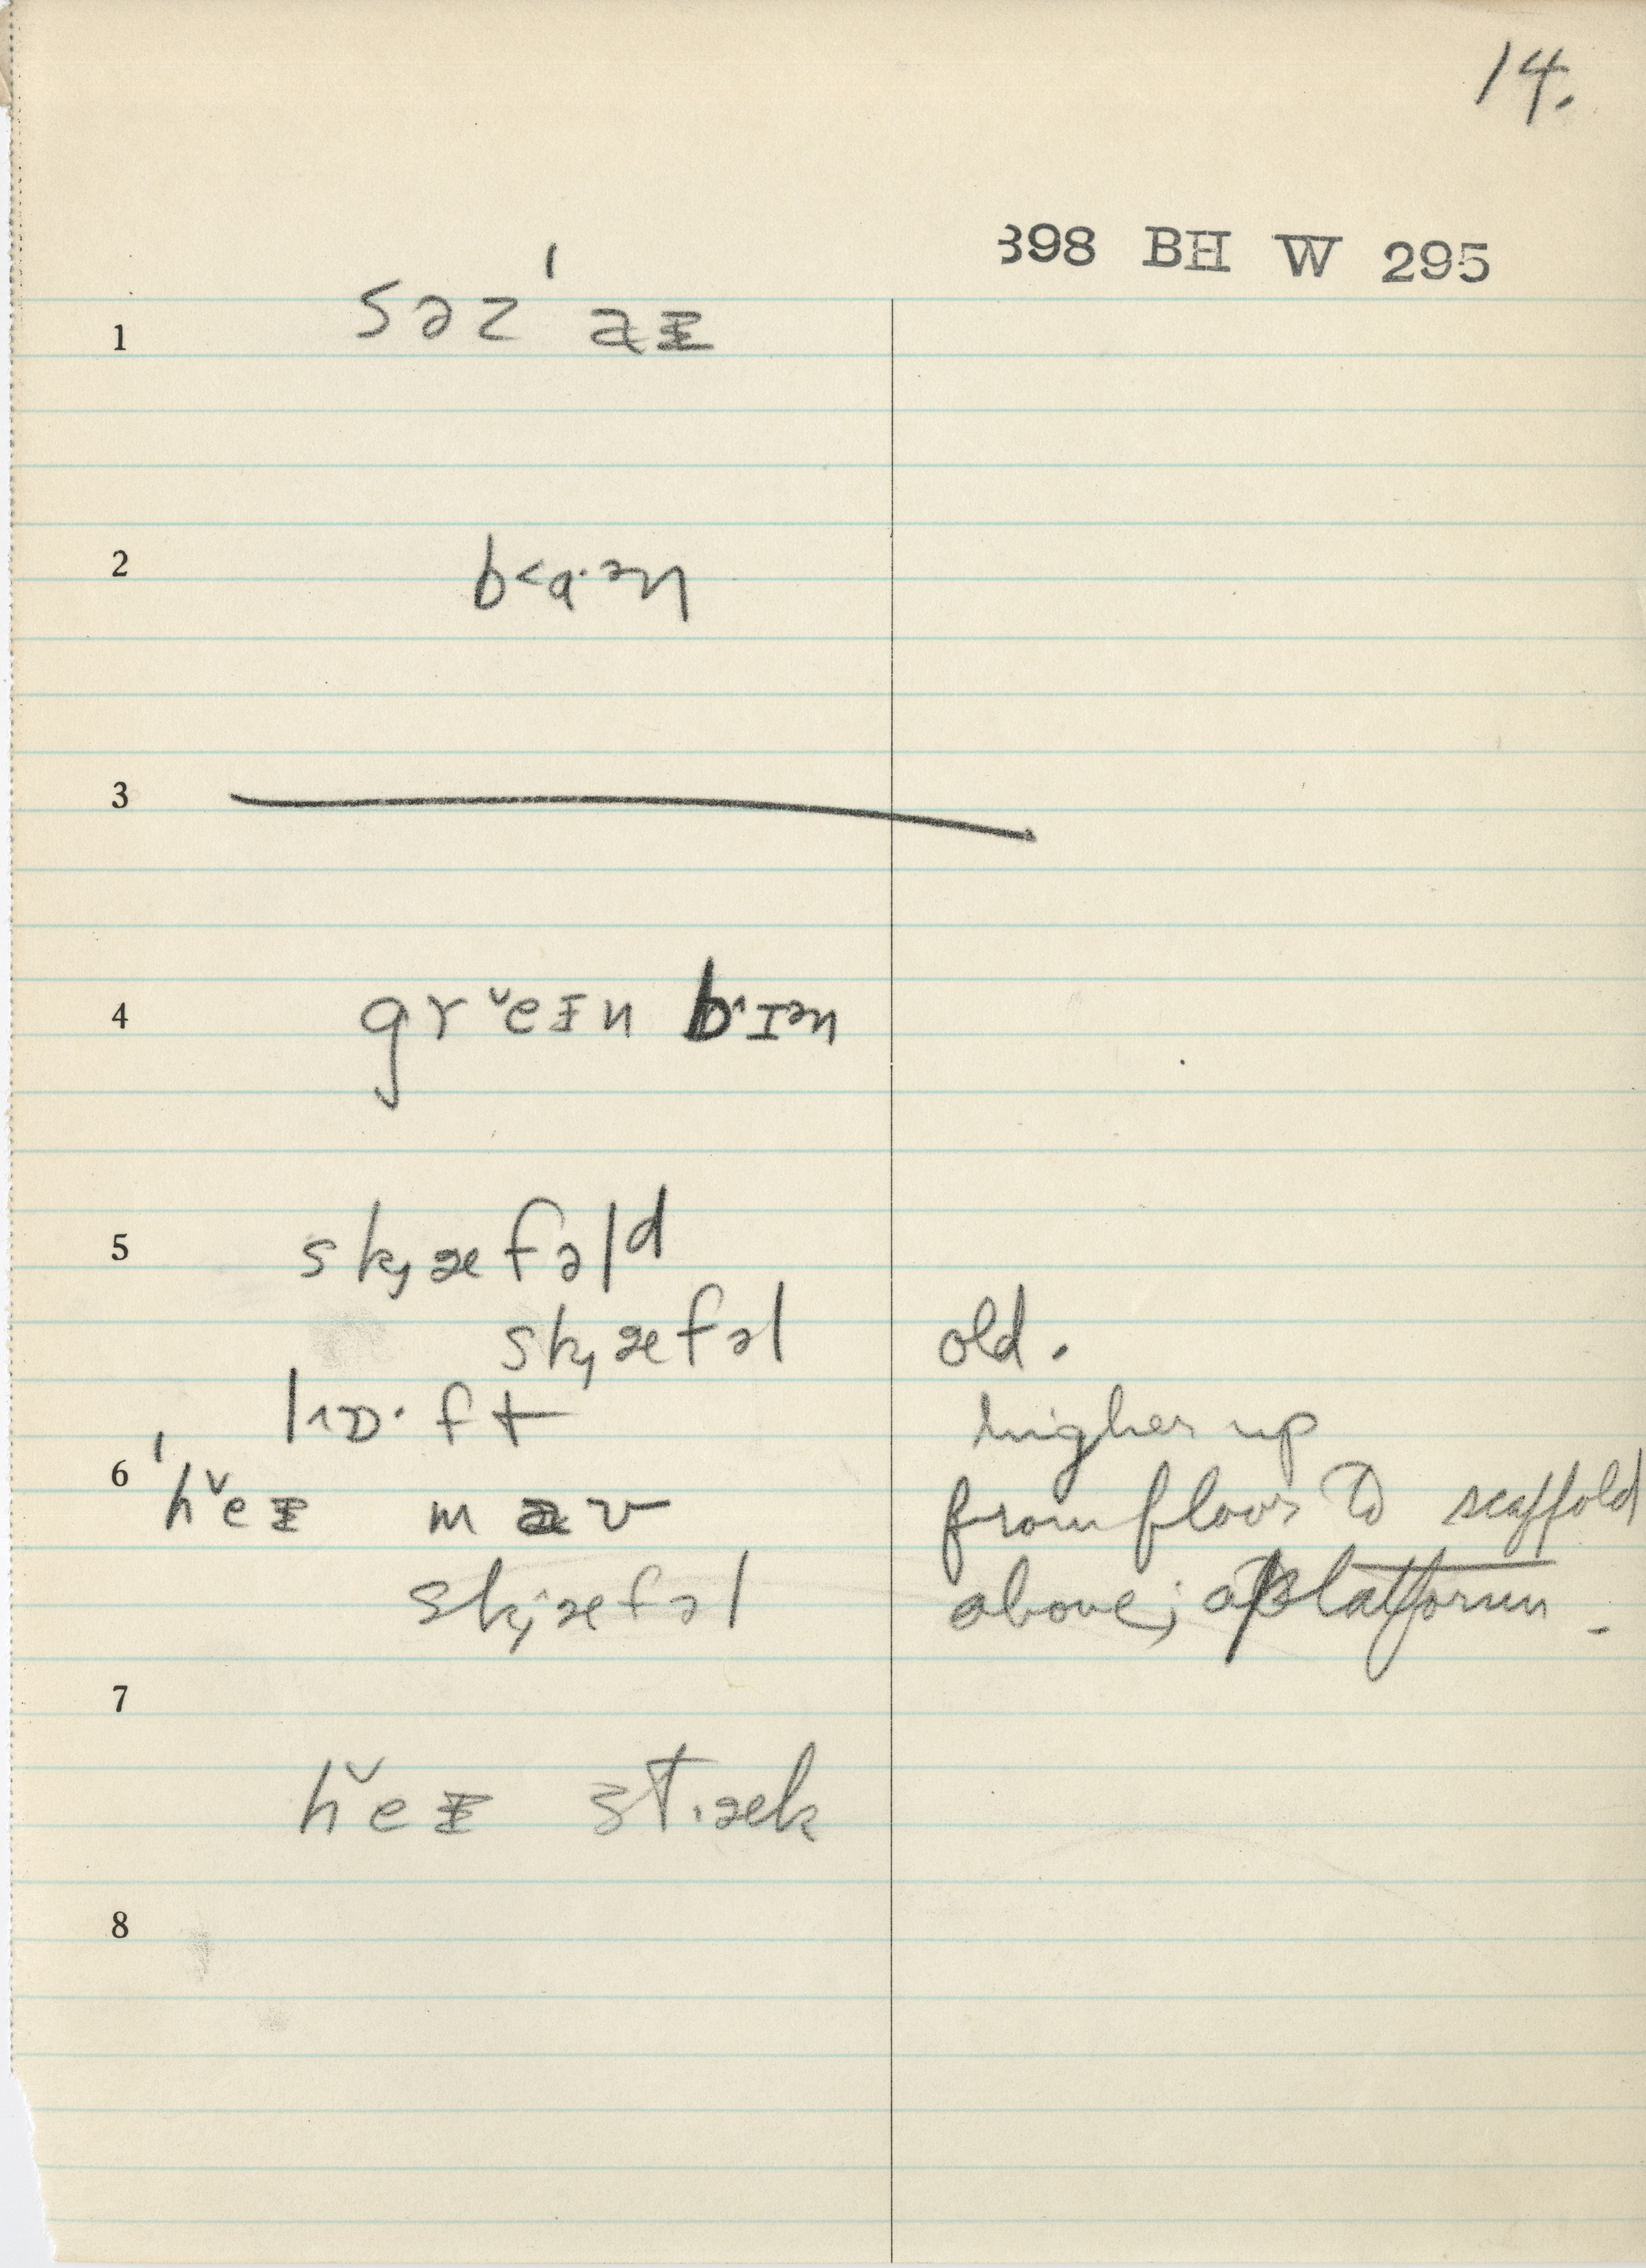 14.
398 BH W 295
1 səz ˈaᵻ
2 b˂ɑ·ən
3
4 grˇeᵻn bˈɪən
5 sk̡æfəld
sk̡æfəl old.
l˄ɒ·ft higher up
6 ˈhˇeᵻ maʊ from floor to scaffold
sk̡æfəl above; a platform.
7
hˇeᵻ st·æk
8